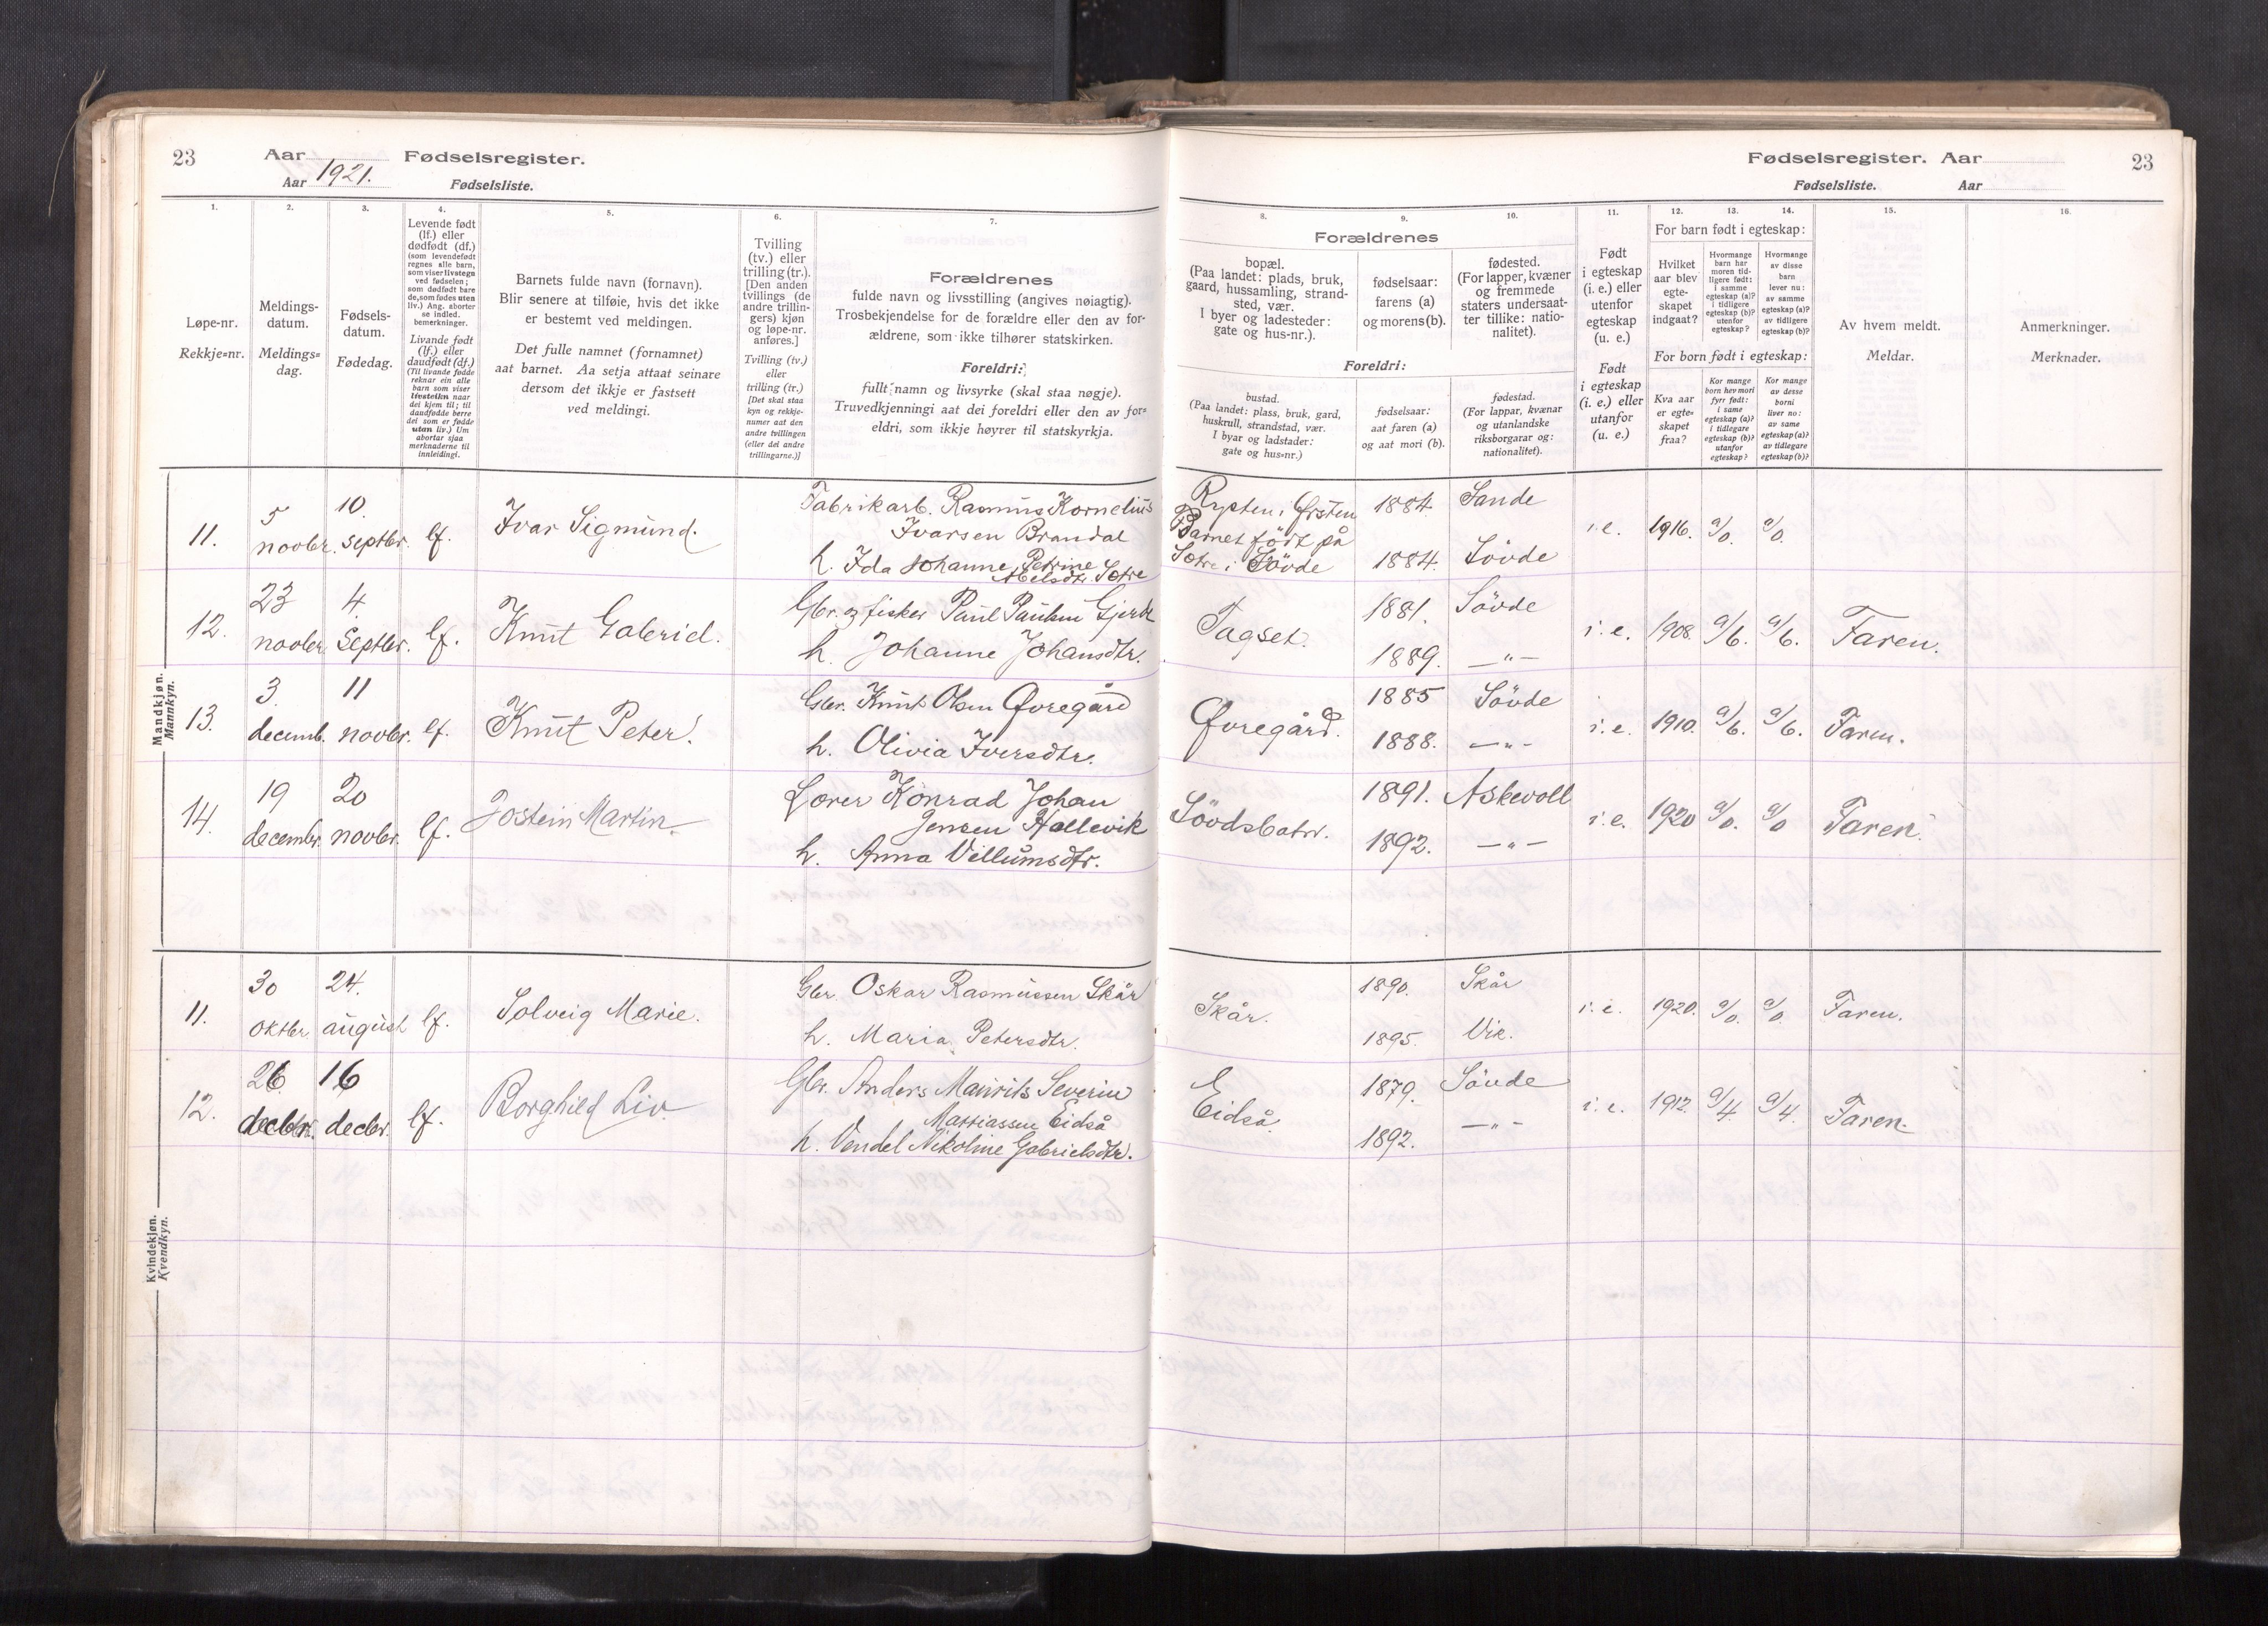 23
Aar
Fødselsregister.
Aar 1921.
Fødselsliste.
Fødselsregister. Aar
23
Fødselsliste.
Aar
1.
2.
3.
4.
5.
6.
7.
Løpe-nr.
Rekkje=nr.
Meldings-
datum.
Meldings=
dag.
Fødsels-
datum.
Fødedag.
Levende født
(lf.) eller
dødfødt (df.)
(som levendefødt
regnes alle barn,
som viser livstegn
ved fødselen;
som dødfødt bare
de, som fødes uten
liv.) Ang. aborter
se indled.
bemerkninger.
Livande født
(lf.) eller
daudfødt (df.)
(Til livande fødde
reknar ein alle
barn som viser
livsteikn naar
dei kjem til; til
daudfødde berre
dei som er fødde
utan liv.) Um
abortar sjaa
merknaderne til
innleidingi.
Barnets fulde navn (fornavn).
Blir senere at tilføie, hvis det ikke
er bestemt ved meldingen.
Det fulle namnet (fornamnet)
aat barnet. Aa setja attaat seinare
dersom det ikkje er fastsett
ved meldingi.
Tvilling
(tv.) eller
trilling (tr.).
[Den anden
tvillings (de
andre trillin-
gers) kjøn
og løpe-nr.
anføres.]
Tvilling (tv.)
eller
trilling (tr.)
[Det skal staa
kyn og rekkje-
numer aat den
andre tvillingen
(eller dei andre
trillingarne.)]
Forældrenes
fulde navn og livsstilling (angives nøiagtig).
Trosbekjendelse for de forældre eller den av for-
ældrene, som ikke tilhører statskirken.
Foreldri:
fullt namn og livsyrke (skal staa nøgje).
Truvedkjenningi aat dei foreldri eller den av for=
eldri, som ikkje høyrer til statskyrkja.
8.
9.
10.
11.
12.
13.
14.
15.
16.
Forældrenes
bopæl.
(Paa landet: plads, bruk,
gaard, hussamling, strand-
sted, vær.
I byer og ladesteder:
gate og hus-nr.).
fødselsaar:
farens (a)
og morens (b).
fødested.
(For lapper, kvæner
og fremmede
staters undersaat-
ter tillike: natio-
nalitet).
Foreldri:
bustad.
(Paa landet: plass, bruk, gard,
huskrull, strandstad, vær.
I byar og ladstader:
gate og hus=nr.)
fødselsaar:
aat faren (a)
og aat mori (b).
fødestad.
(For lappar, kvænar
og utanlandske
riksborgarar og:
nationalitet).
Født
i egteskap
(i. e.) eller
utenfor
egteskap
(u. e.)
Født
i egteskap
(i. e.) eller
utanfor
(u. e.)
For barn født i egteskap:
Hvilket
aar blev
egte-
skapet
indgaat?
Hvormange
barn har
moren tid-
ligere født:
i samme
egteskap (a)?
i tidligere
egteskap (b)?
utenfor
egteskap?
Hvormange
av disse
barn
lever nu:
av samme
egteskap (a)?
av tidligere
egteskap (b)?
For born født i egteskap:
Kva aar
er egte-
skapet
fraa?
Kor mange
born hev mori
fyrr født:
i same
egteskap (a)?
i tidlegare
egteskap (b)?
utanfor
egteskap?
Kor mange
av desse
borni
liver no:
av same
egteskap (a)?
av tidlegare
egteskap (b)?
Av hvem meldt.
Meldar.
Anmerkninger.
Merknader.
Mandkjøn.
Mannkyn.
11.
5
novbr.
10.
septbr.
lf.
Ivar Sigmund.
Fabrikarb. Rasmus Kornelius
Ivarsen Brandal
h. Ida Johanne Petrine
Abelsdtr. Sætre
Rysten i Ørsten
Barnet født på
Sætre i Søvde
1884.
1884.
Sande
Søvde
i. e.
1916.
a/0.
a/0.
12.
23
novbr.
4
Septbr.
lf.
Knut Gabriel.
Gbr. og fisker Paul Paulsen Gjerde
h. Johanne Johansdtr.
Tagset.
1881.
1889.
Søvde
—"—
i. e.
1908.
a/6.
a/6.
Faren.
13.
3.
decemb.
11
novbr.
lf.
Knut Peter.
Gbr. Knut Olsen Øvregård
h. Olivia Iversdtr.
Øvregård.
1885
1888.
Søvde
—"—
i. e.
1910.
a/6.
a/6.
Faren.
14.
19
decembr.
20
novbr.
lf.
Jostein Martin.
Lærer Konrad Johan
Jensen Hallevik
h. Anna Villumsdtr.
Søvdsbotn.
1891.
1892.
Askevoll
—"—
i. e.
1920
a/0.
a/0
Faren.
Kvindekjøn.
Kvendkyn.
11.
30
oktbr.
24.
august
lf.
Solveig Marie.
Gbr. Oskar Rasmussen Skår
h. Maria Petersdtr.
Skår.
1890.
1895.
Skår
Vik.
i. e.
1920.
a/0.
a/0.
Faren.
12.
26
decbr.
16
decbr.
lf.
Borghild Liv.
Gbr. Anders Maurits Severin
Mattiassen Eidså
h. Vendel Nikoline Gabrielsdtr.
Eidså.
1879.
1892.
Søvde
—"—
i. e.
1912.
a/4.
a/4.
Faren.